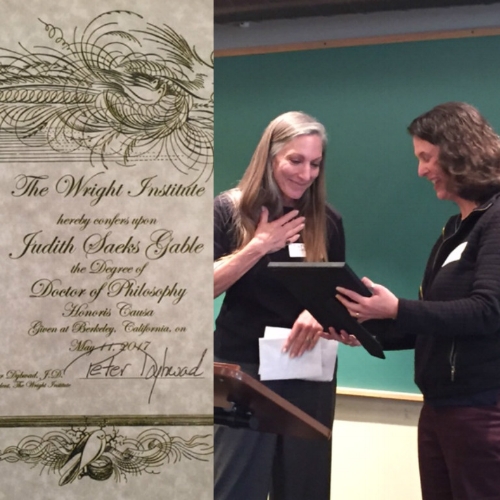 The Wright Institute
hereby confers upon
Judith Saeks Gable
the Degree of
Doctor of Philosophy
Honoris Causa
Given at Berkeley, California, on
May 11, 2017
Peter Dybwad
Dybwad, J.D.
The Wright Institute